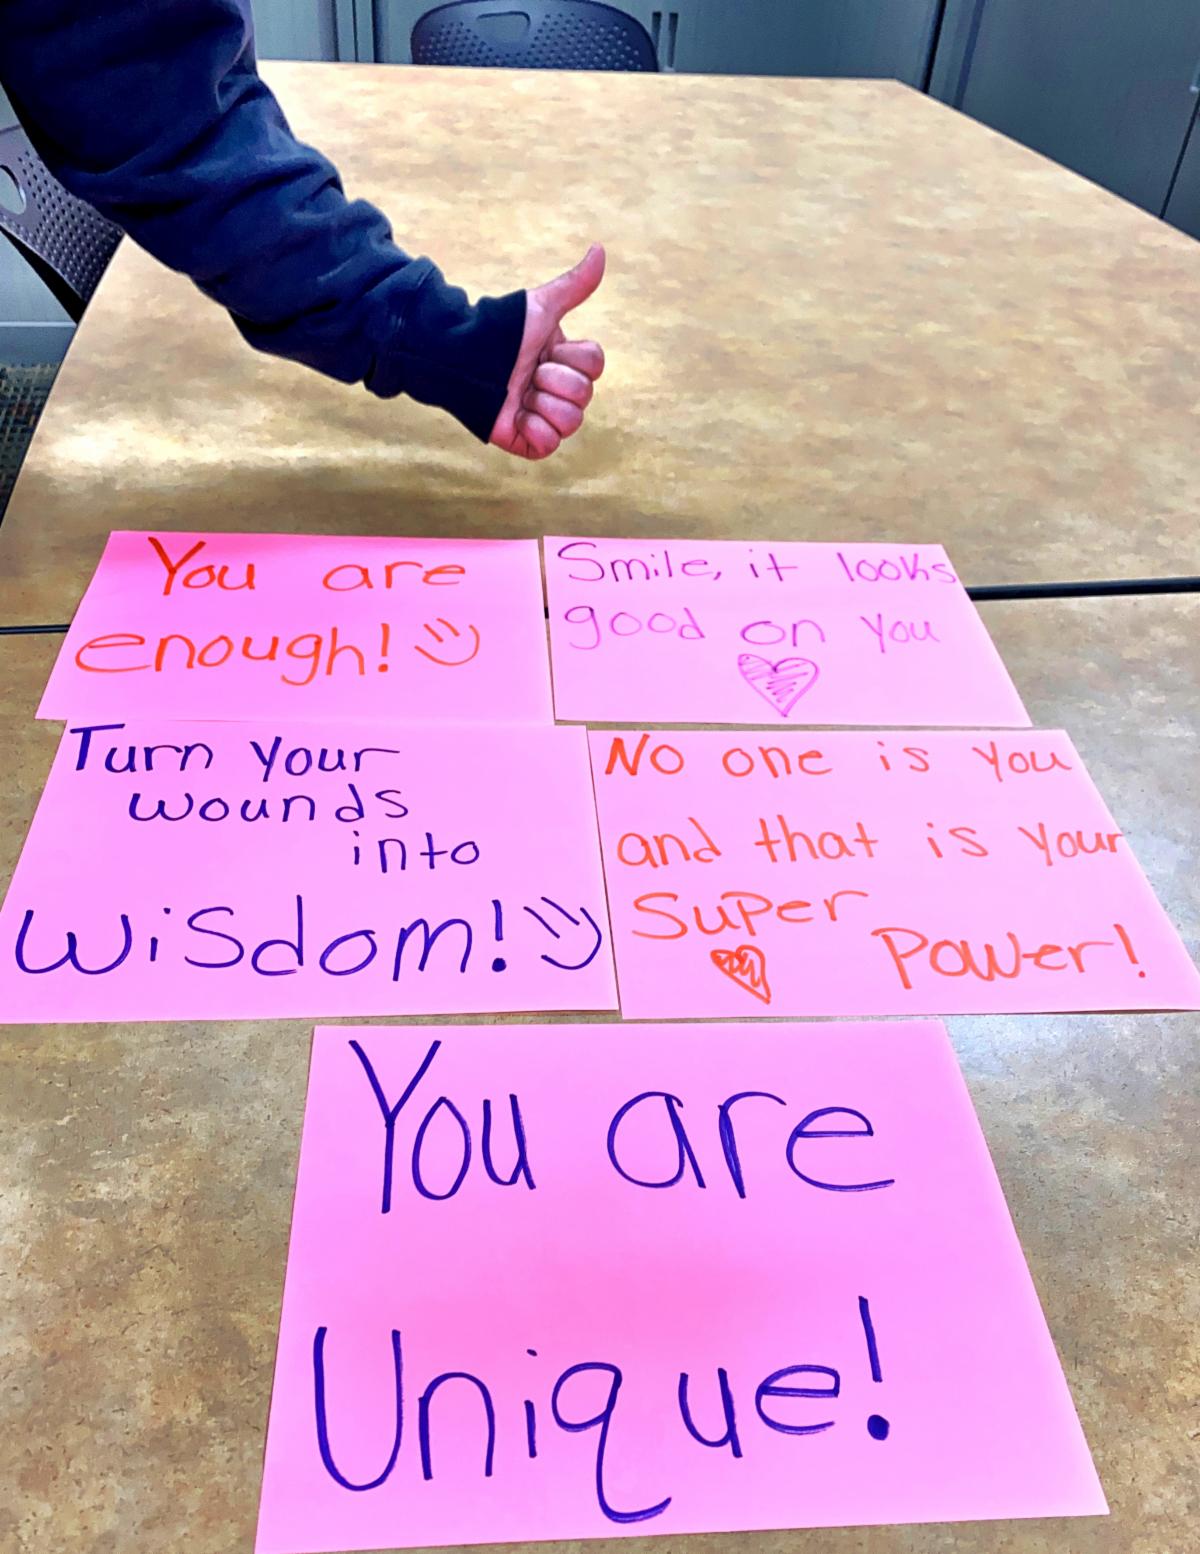 You are
enough!
Smile, it looks
good on you
Turn your
wounds
into
Wisdom!
No one is you
and that is your
Super
Power!
You are
Unique!